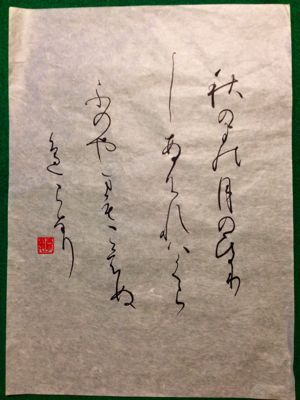 秋のよの月のひかり
しあかけれはくら
ふのやまもこえぬ
へらなり